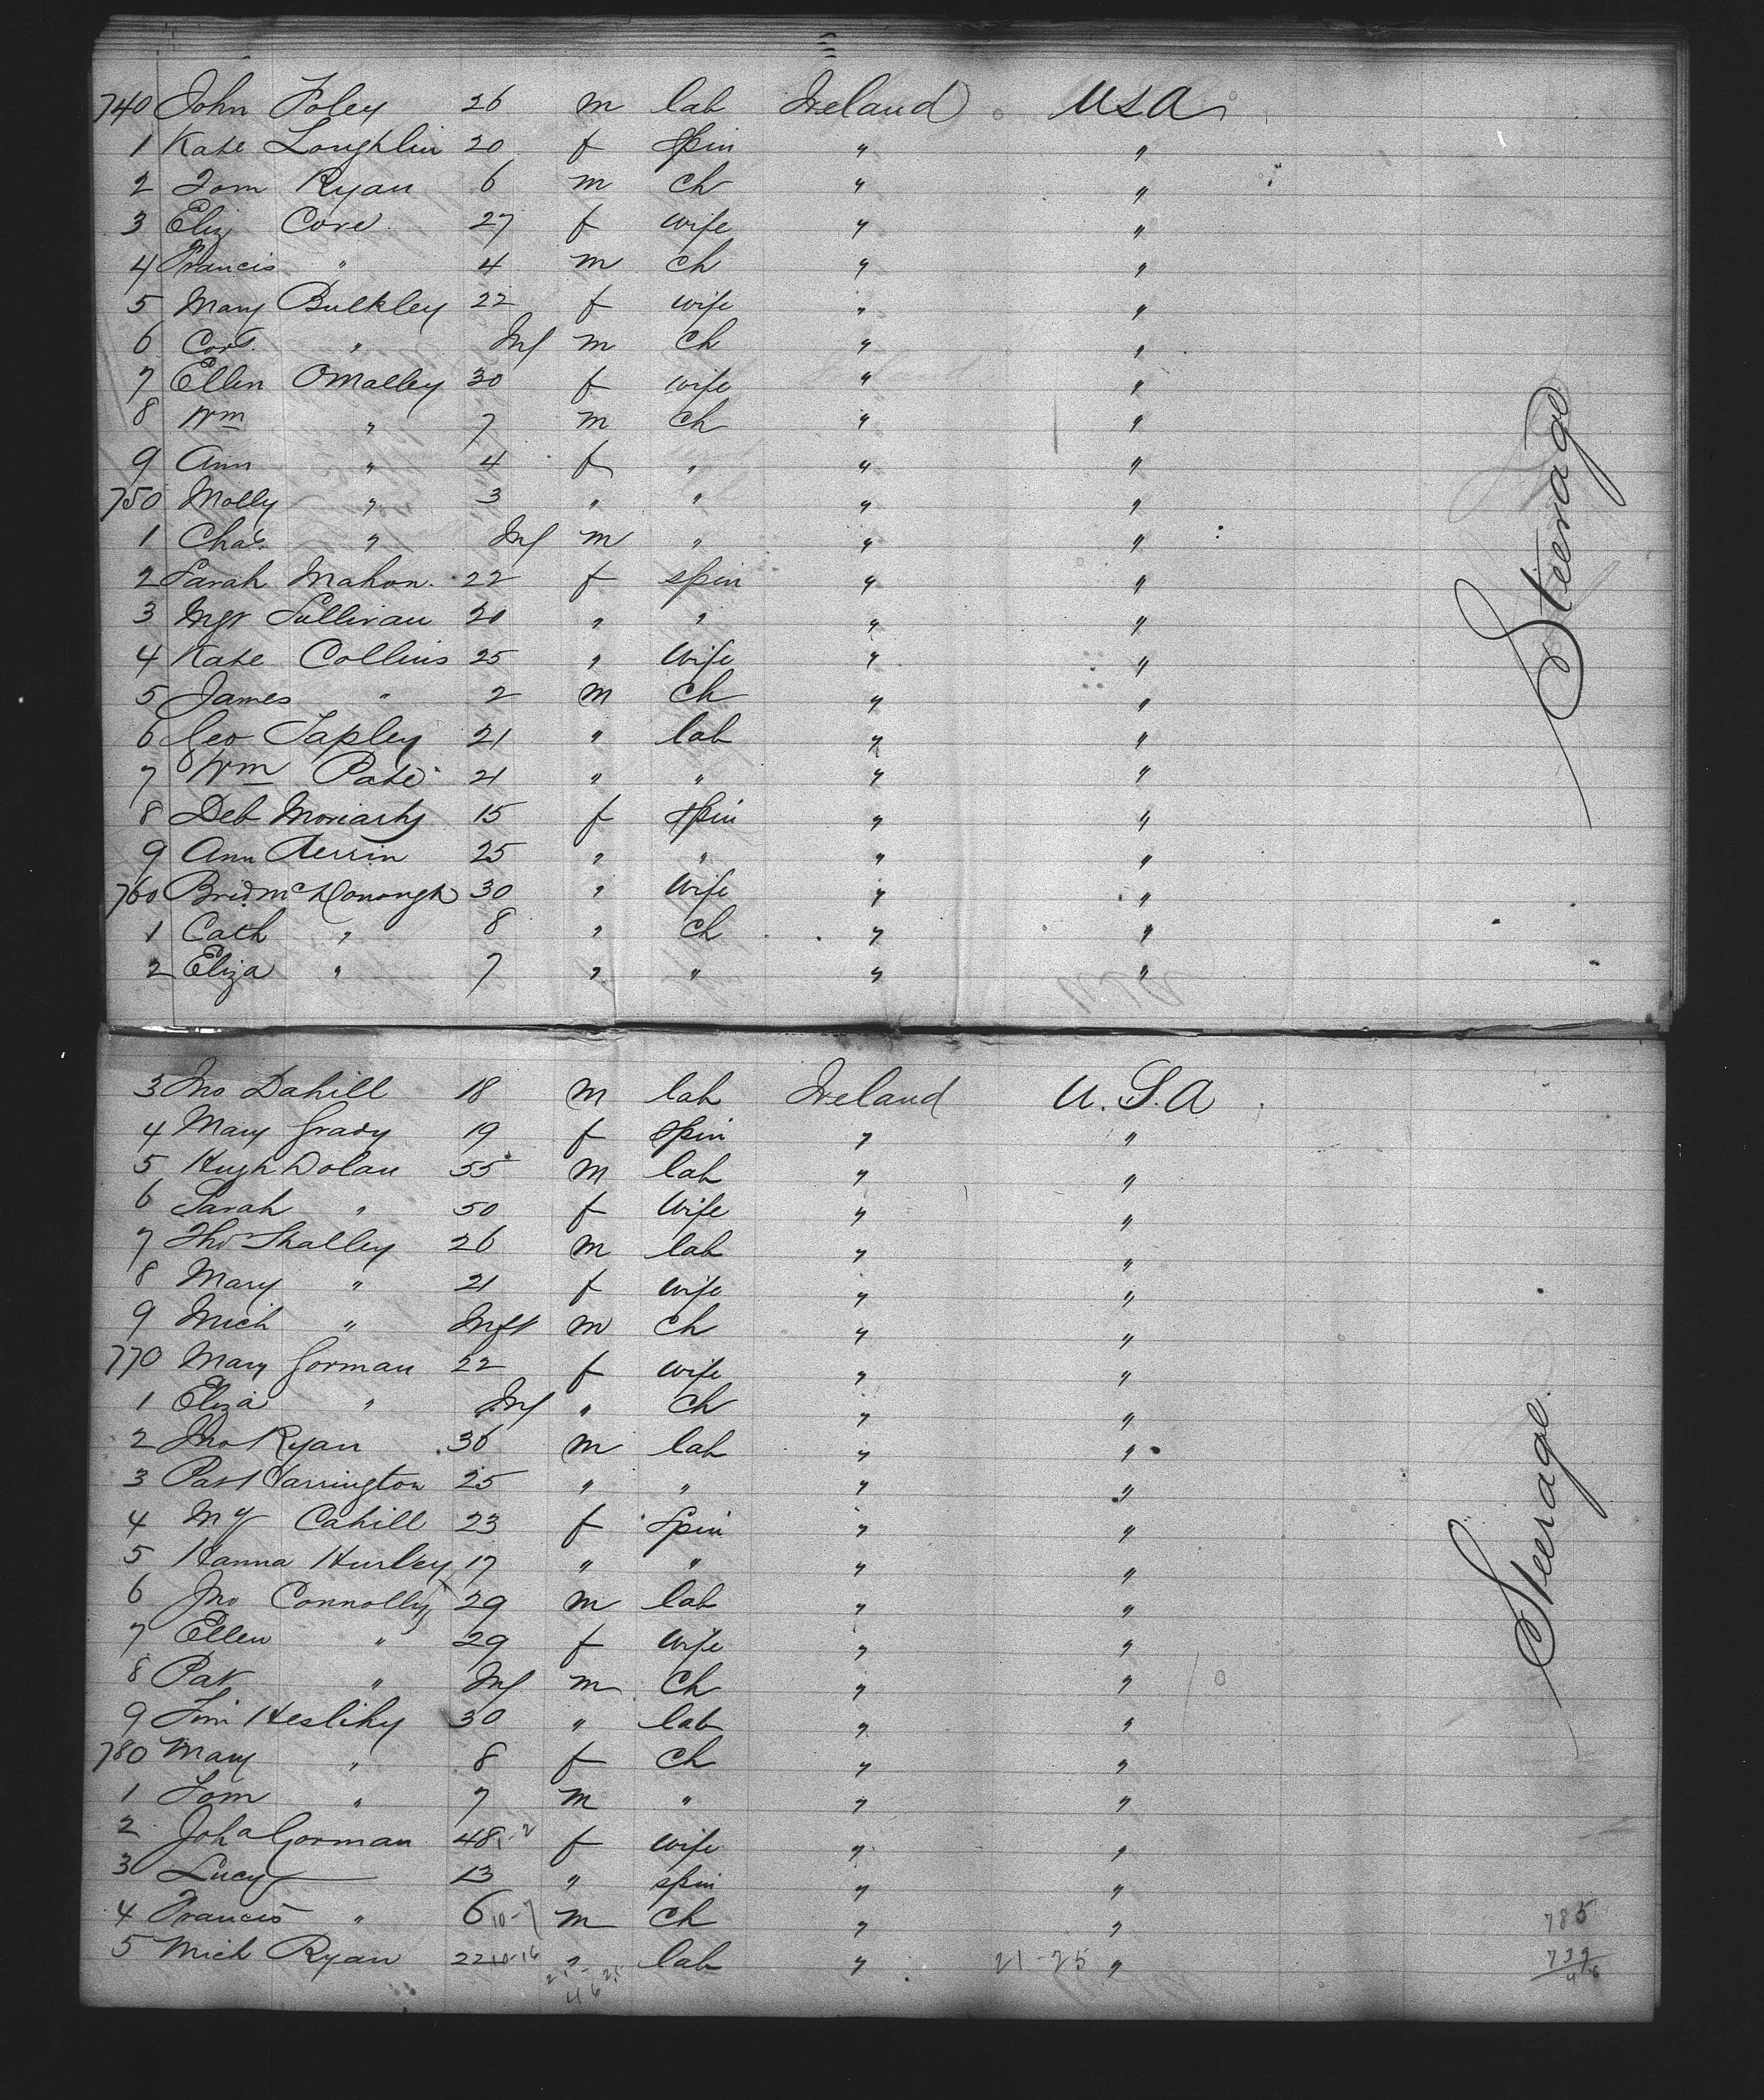 740 John Foley 26 m lab Ireland USA
1 Kate Loughlin 20 f Spin " "
2 Tom Ryan 6 m ch " "
3 Eliz Core 27 f wife " "
4 Francis " 4 m ch " "
5 Mary Bulkley 22 f wife " "
6 Cors. " Inf m ch " "
7 Ellen OMalley 30 f wife " "
8 Wm " 7 m ch " "
9 Ann " 4 f " " "
750 Molly " 3 " " " "
1 Chas. " Inf m " " "
2 Sarah Mahon 22 f spin " "
3 Mgt Sullivan 20 " " " "
4 Kate Collins 25 " Wife " "
5 James " 2 m ch " "
6 Geo Tapley 21 " lab " "
7 Wm Pate 21 " " " "
8 Deb Moriarty 15 f Spin " "
9 Ann 25 " " " "
760 Brid. McDonough 30 " Wife " "
1 Cath " 8 " ch " "
2 Eliza " 7 " " " "
Steerage
3 Jno Dahill 18 m lab Ireland U.S.A
4 Mary Grady 19 f Spin " "
5 Hugh Dolan 55 m lab " "
6 Sarah " 50 f Wife " "
7 Tho Shalley 26 m lab " "
8 Mary " 21 f wife " "
9 Mich " Inft m Ch " "
770 Mary Gorman 22 f wife " "
1 Eliza " Inf " Ch " "
2 Jno Ryan 36 m lab " "
3 Pat Harrington 25 " " " "
4 My Cahill 23 f Spin " "
5 Hanna Hurley 17 " " " "
6 Jno Connolly 29 m lab " "
7 Ellen " 29 f wife " "
8 Pat " Inf m Ch " "
9 Tim Heslihy 30 " lab " "
780 Mary " 8 f Ch " "
1 Tom " 7 m " " "
2 Joha Gorman 48 1-2 f wife " "
3 Lucy — 13 " spin " "
4 Francis " 6 10-7 m Ch " "
5 Mich Ryan 22 10-16 " lab " 21-25 "
Steerage
785
739
46